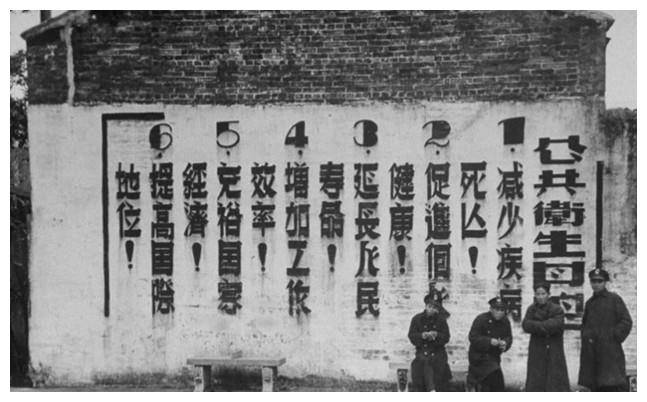 公共衛生目的
1.减少疾病
死亡!
2.促進個人
健康!
3.延長人民
寿命!
4.增加工作
效率!
5.充裕国家
經濟!
6.提高国際
地位!